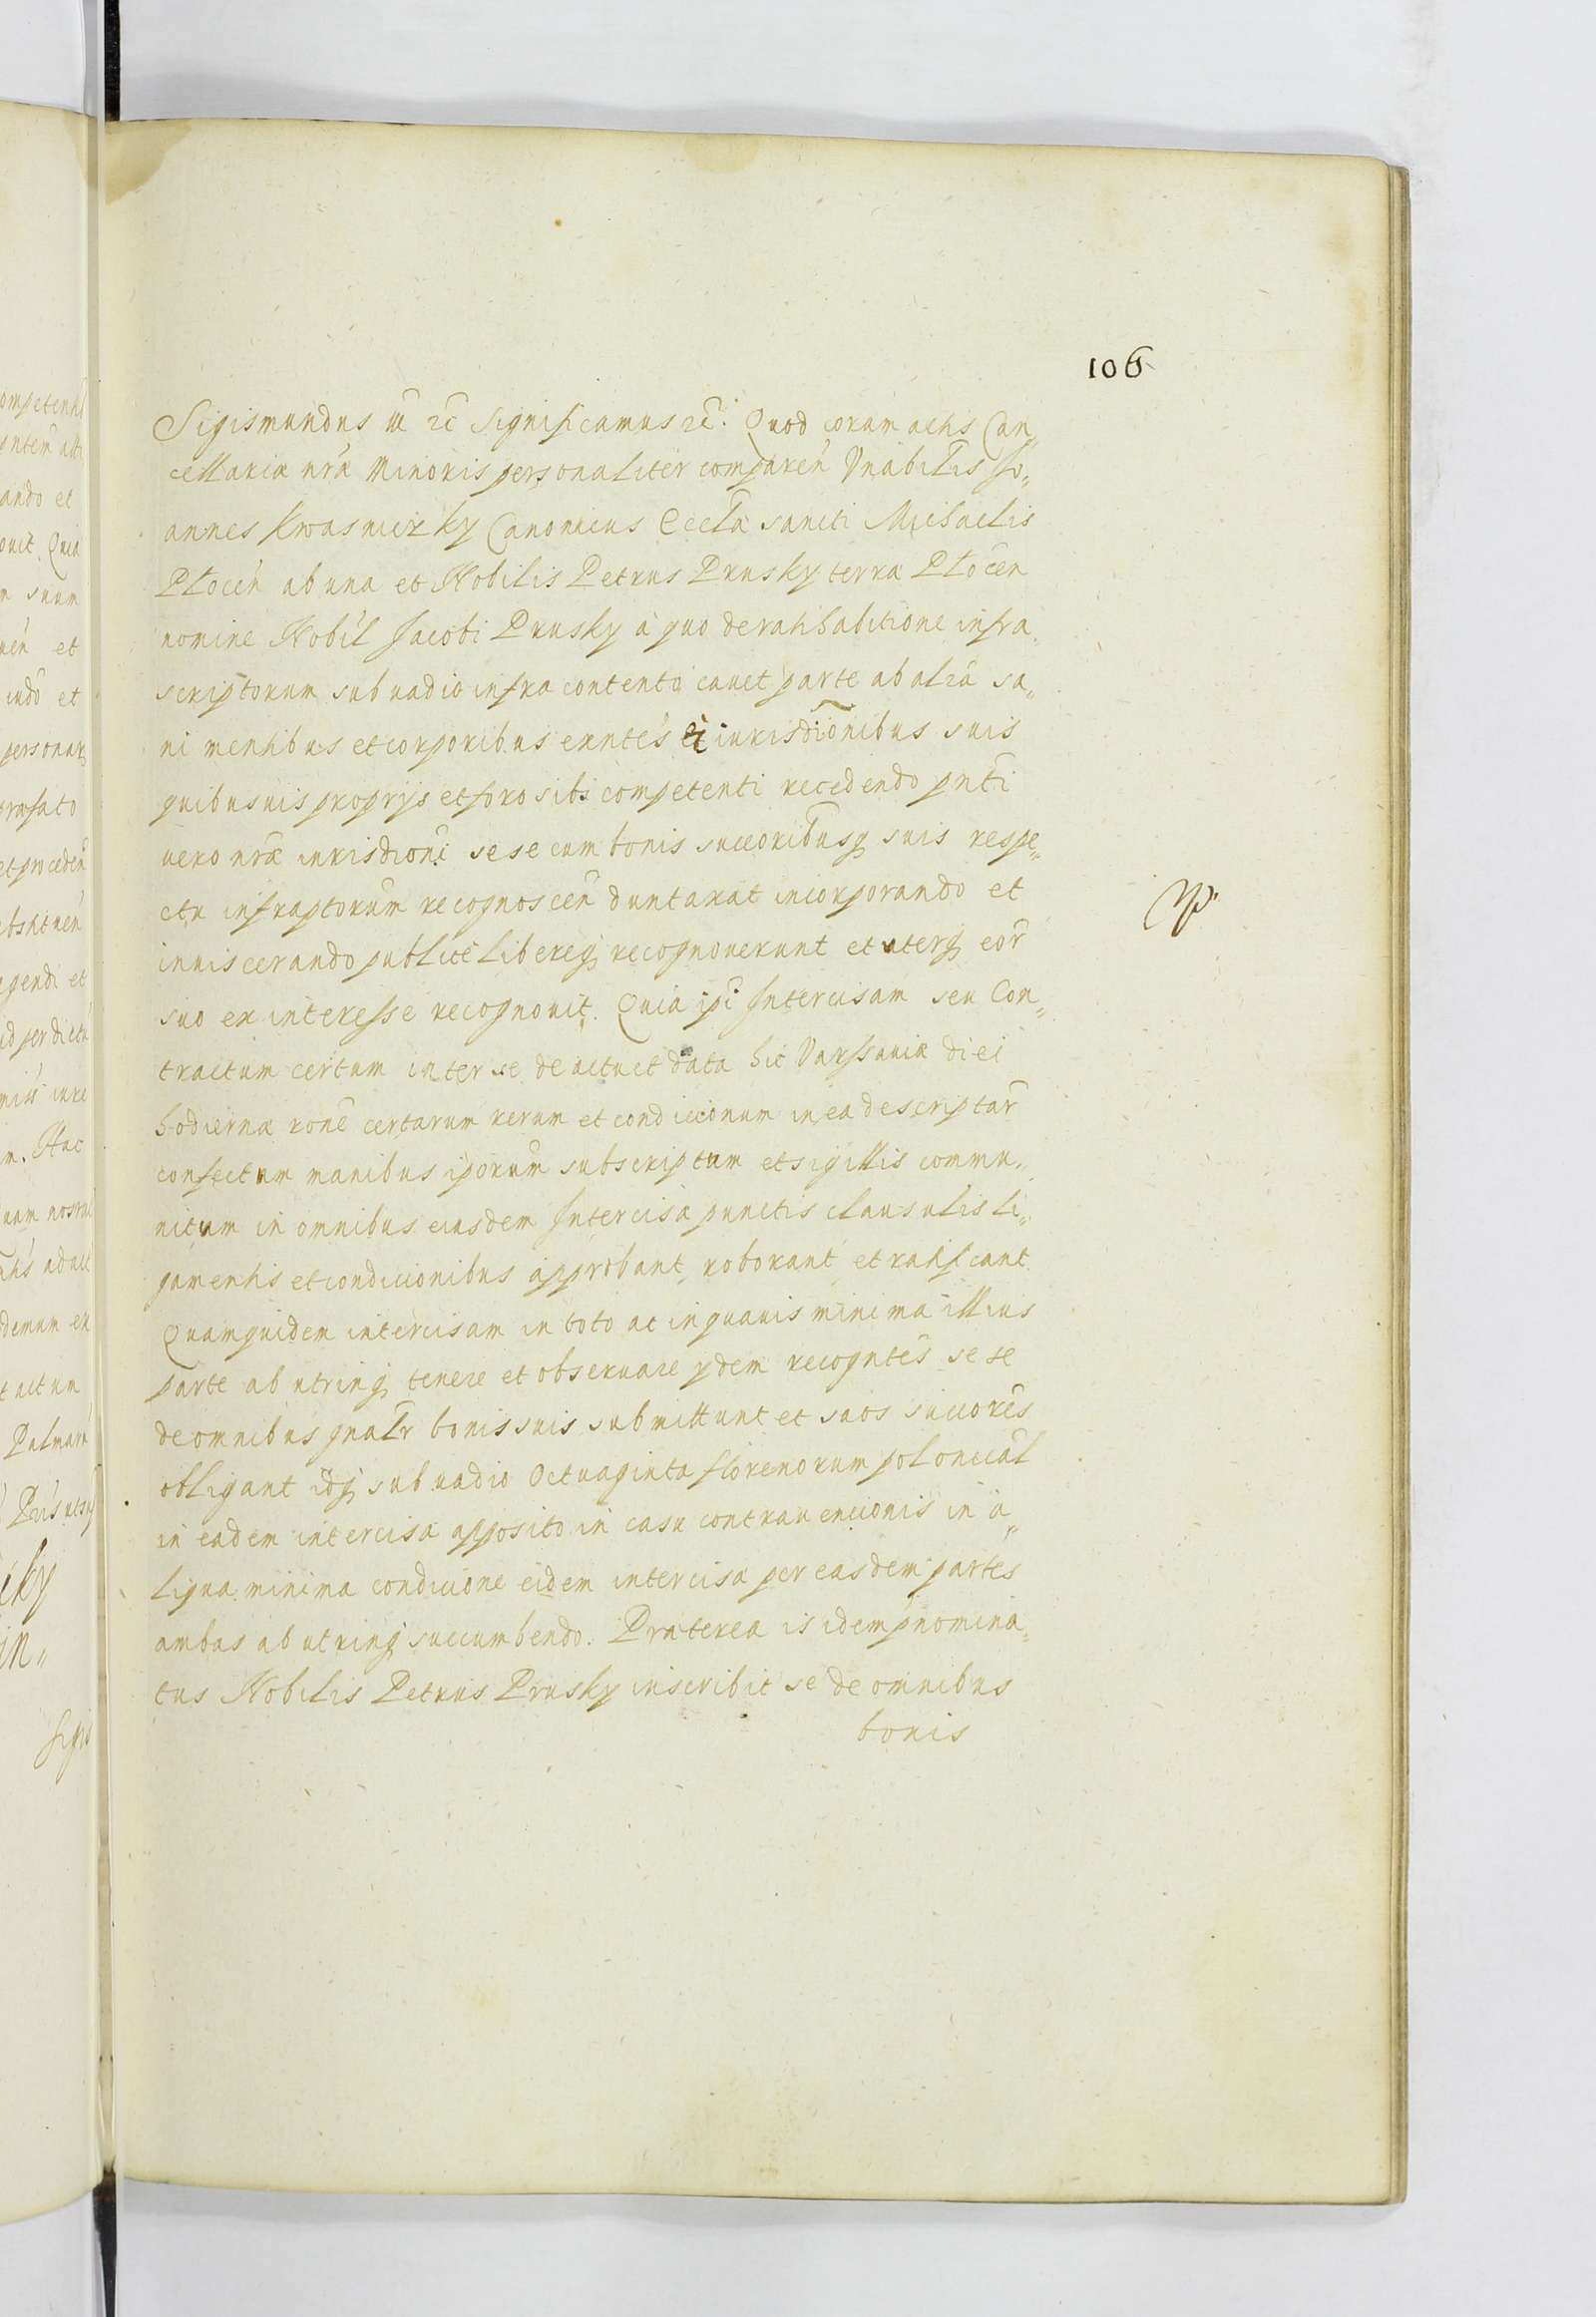 106
Sigismundus III etc̃ significamus etc̃. Quod coram actis Can„
cellariæ nr̃æ Minoris personaliter comparen̄ Vnabilis Jo„
annes Kwasniczky Canonicus Eccl̃æ sancti Michaelis
Plocen̄ ab una et Nobilis Petrus Prusky terræ Plocen̄
nomine Nobil Jacobi Prusky a quo de ratihabitione infra„
scriptorum sub vadio infra contento cauet parte ab alia sa„
ni mentibus et corporibus exn̄tes à iurisdic̄onibus suis
quibusuis proprijs et foro sibi competenti recedendo pnt̄i
uero nr̃æ iurisdic̄oni sese cum bonis succ̄oribusq suis respe„
ctu infraptorum recognoscen̄ duntaxat incorporando et
inuiscerando publicè libereq recognouerunt et uterq eor̃
suo ex interesse recognouit. Quia ip̄i Intercisam seu Con„
tractum certum inter se de actu et data hic Varssauiæ diei
hodiernæ rōne certarum rerum et condicionum in ea descriptar̃
confectum manibus ip̄orum subscriptum et sigillis commu„
nitum in omnibus eiusdem Intercisæ punctis clausulis li„
gamentis et condicionibus approbant, roborant et ratificant
Quamquidem intercisam in toto ac in quauis minima illius
parte ab utrinq tenere et obseruare ydem recogn̄tes sese
de omnibus gnal̃r bonis suis submittunt et suos succ̄ores
obligant idq sub vadio Octuaginta florenorum polonical̃
in eadem intercisa apposito in casu contrauencionis in a„
liqua minima condicione eidem intercisæ per easdem partes
ambas ab utrinq succumbendo. Præterea is idem pnomina„
tus Nobilis Petrus Prusky inscribit se de omnibus
bonis